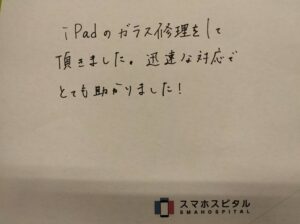 iPadのガラス修理をして
頂きました。迅速な対応で
とても助かりました!
スマホスピタル
SMAHOSPITAL